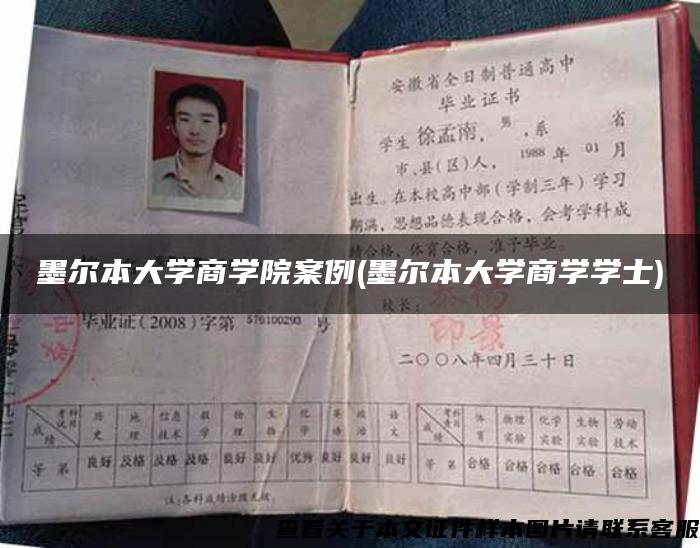 安徽省全日制普通高中
毕业证书
学生 徐孟南，男，系 省
市、县(区)人，1988年01月
出生。在本校高中部(学制三年)学习
期满，思想品德表现合格，会考学科成
绩合格，体育合格，准予毕业。
墨尔本大学商学院案例(墨尔本大学商学学士)
校长：
印景
毕业证(2008)字第 576100293 号
二〇〇八年四月三十日
考试科目 历史 地理 信息技术 数学 物理 生物 化学 英语 政治 语文
成绩
等第 良好 及格 及格 及格 良好 良好 优秀 良好 良好 良好
考查科目 体育 物理实验 化学实验 生物实验 劳动技术
成绩
等第 合格 合格 合格 合格 合格
注:各科成绩涂改无效。
查看关于本文证件样本图片请联系客服